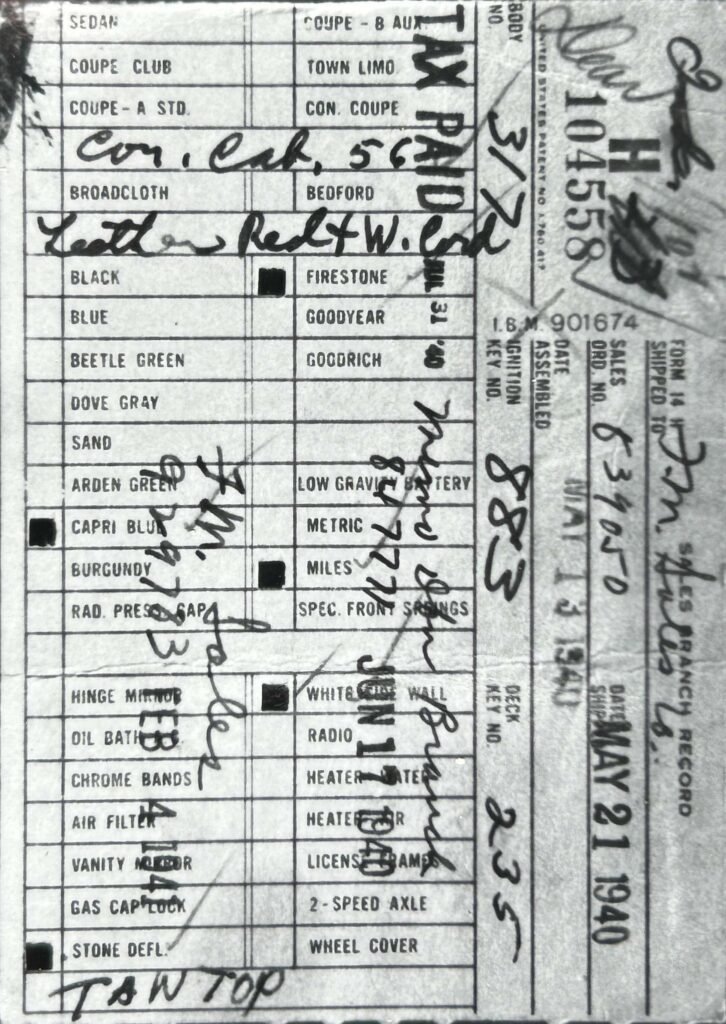 SEDAN
COUPE - B AUX.
COUPE CLUB
TOWN LIMO
COUPE - A STD.
CON. COUPE
Con. Cab. 56
BROADCLOTH
BEDFORD
Leather Red + W. Cord
BLACK
FIRESTONE
BLUE
GOODYEAR
BEETLE GREEN
GOODRICH
DOVE GRAY
SAND
ARDEN GREEN
LOW GRAVITY BATTERY
CAPRI BLUE
METRIC
BURGUNDY
MILES
RAD. PRESS. CAP
SPEC. FRONT SPRINGS
HINGE MIRROR
WHITE SIDE WALL
OIL BATH
RADIO
CHROME BANDS
HEATER WATER
AIR FILTER
HEATER AIR
VANITY MIRROR
LICENSE FRAMES
GAS CAP LOCK
2-SPEED AXLE
STONE DEFL.
WHEEL COVER
TAN TOP
FORM 14
SALES BRANCH RECORD
SHIPPED TO
SALES ORD. NO. 639050
DATE SHIPPED MAY 21 1940
DATE ASSEMBLED MAY 13 1940
I.B.M. 901674
H
104558
UNITED STATES PATENT NO 1,780,417
BODY NO. 317
IGNITION KEY NO. 883
DECK KEY NO. 235
TAX PAID JUL 31 '40
84777
JUN 17 1940
Branch
F.M. Sales
929783
FEB 4 1941